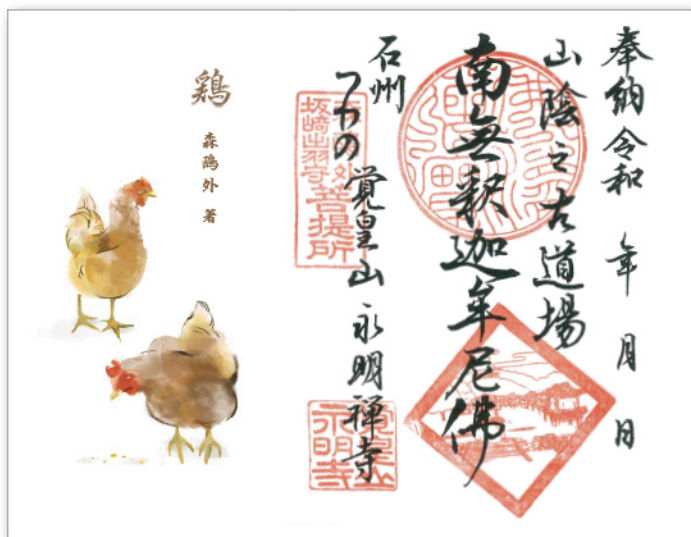 奉納令和 年 月 日
山陰之古道場
南無釈迦牟尼佛
石州
つわの 覚皇山 永明禅寺
森鷗外
坂崎出羽守
菩提所
覚皇山
永明寺
鶏
森鷗外 著